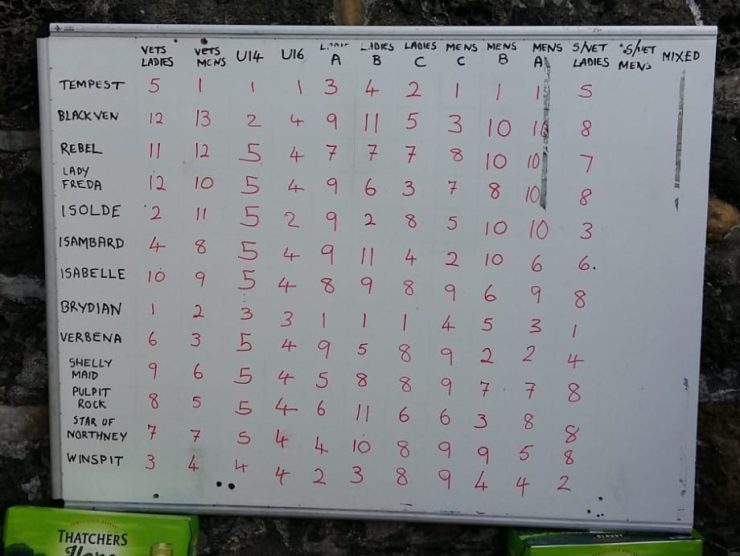 VETS LADIES VETS MENS U14 U16 A LADIES B LADIES C MENS C MENS B MENS A S/NET LADIES S/NET MENS MIXED
TEMPEST 5 1 1 1 3 4 2 1 1 1 5
BLACKVEN 12 13 2 4 9 11 5 3 10 10 8
REBEL 11 12 5 4 7 7 7 8 10 10 7
LADY FREDA 12 10 5 4 9 6 3 7 8 10 8
ISOLDE 2 11 5 2 9 2 8 5 10 10 3
ISAMBARD 4 8 5 4 9 11 4 2 10 6 6.
ISABELLE 10 9 5 4 8 9 8 9 6 9 8
BRYDIAN 1 2 3 3 1 1 1 4 5 3 1
VERBENA 6 3 5 4 9 5 8 9 2 2 4
SHELLY MAID 9 6 5 4 5 8 8 9 7 7 8
PULPIT ROCK 8 5 5 4 6 11 6 6 3 8 8
STAR OF NORTHNEY 7 7 5 4 4 10 8 9 9 5 8
WINSPIT 3 4 4 4 2 3 8 9 4 4 2
THATCHERS